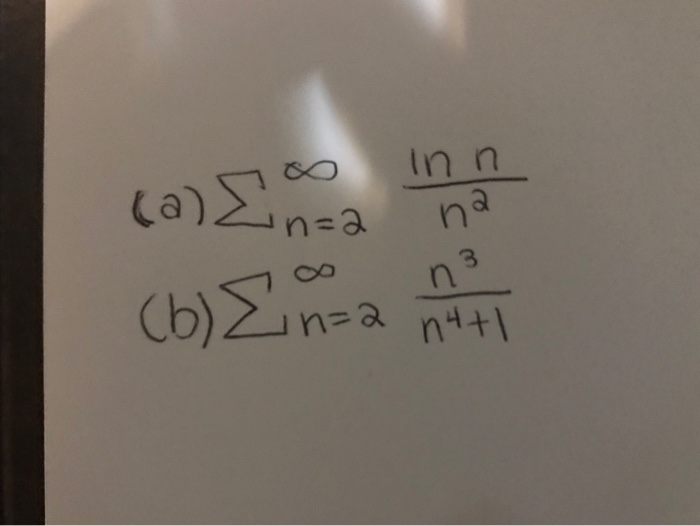 (a) ∑ ∞ n=2 ln n / n²
(b) ∑ ∞ n=2 n³ / n⁴+1